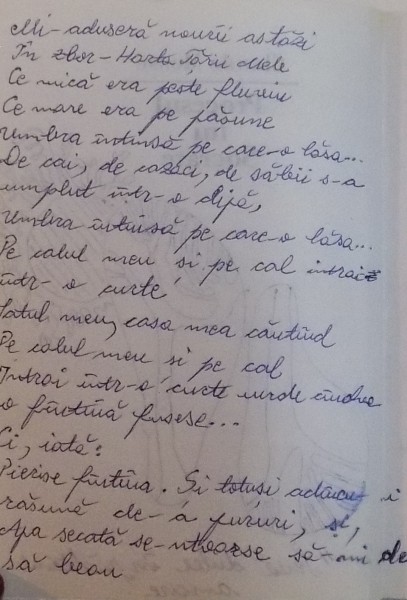 Mi-aduseră nourii astăzi
În zbor - Harta Țării Mele
Ce mică era peste fluviu
Ce mare era pe pășune
Umbra întinsă pe care-o lăsa...
De cai, de cazaci, de săbii s-a
umplut într-o clipă,
Umbra întinsă pe care-o lăsa...
Pe calul meu și pe cal intrai
într-o curte
Satul meu, casa mea căutînd
Pe calul meu și pe cal
Intrai într-o curte unde cîndva
o fîntînă fusese...
Ci, iată:
Pierise fîntîna. Și totuși adâncu-i
răsună de-a pururi, și,
Apa secată se-ntoarse să-mi de
să beau